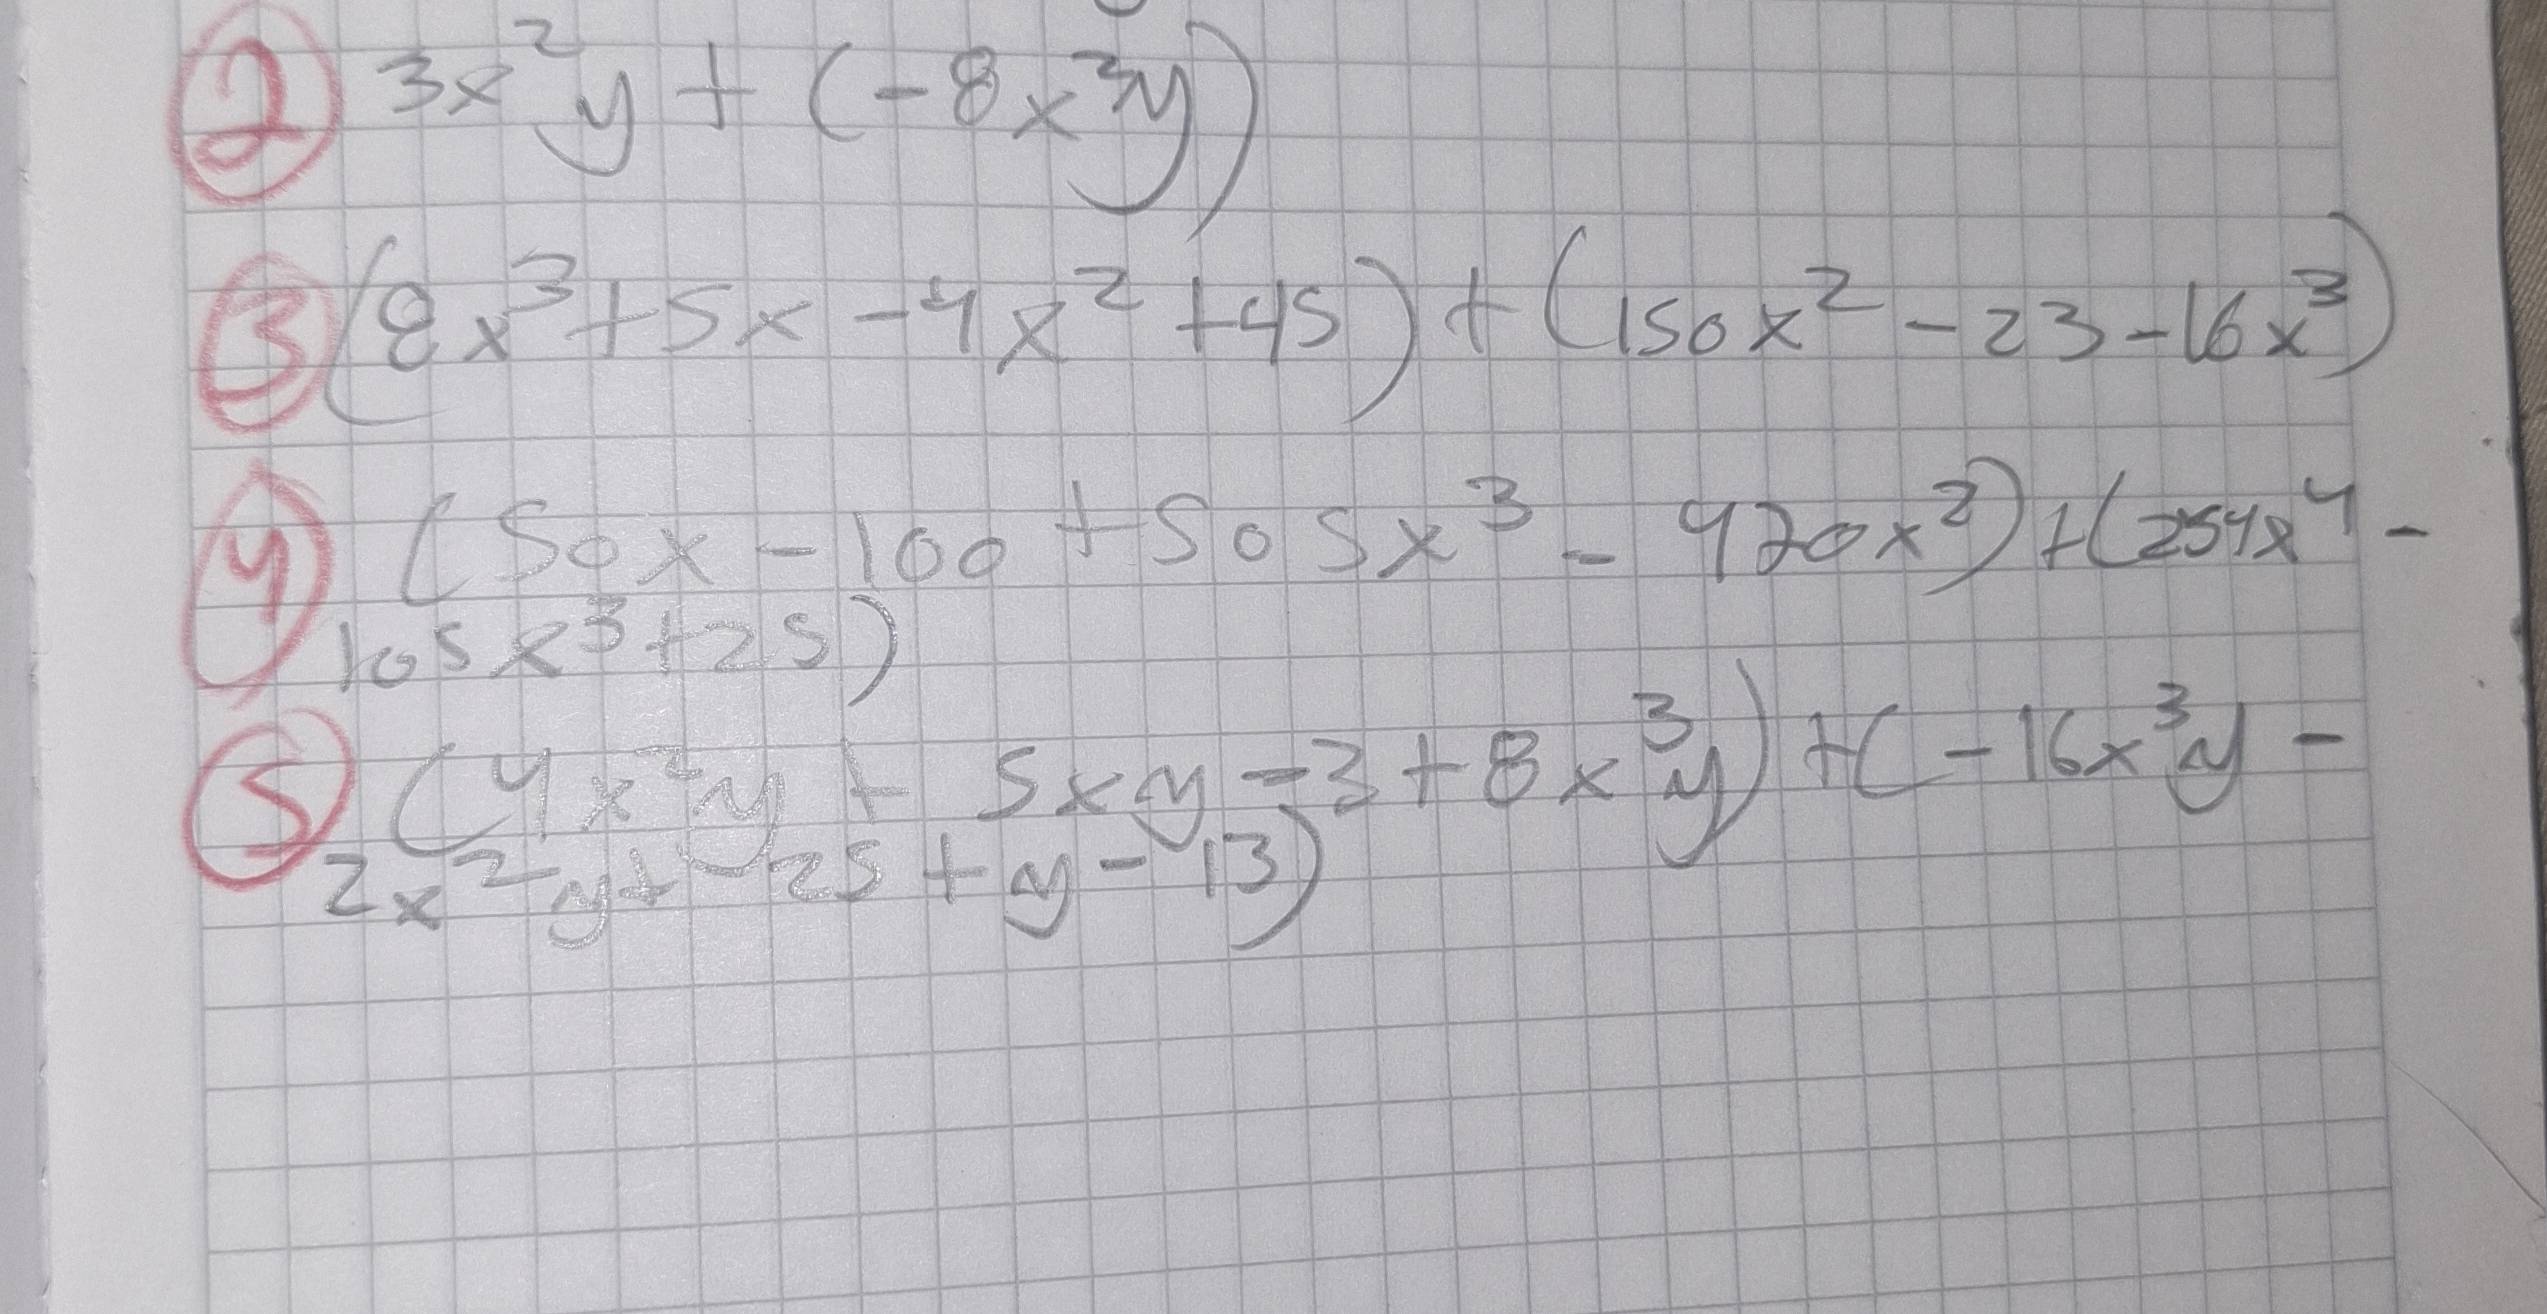 ② 3x²y + (-8x²y)
③ (8x³+5x-4x²+45)+(150x²-23-16x³)
④ (50x-100+505x³-420x²)+(254x⁴-
105x³+25)
⑤ (4x²y+5xy-3+8x³y)+(-16x³y-
2x²y+25+y-13)